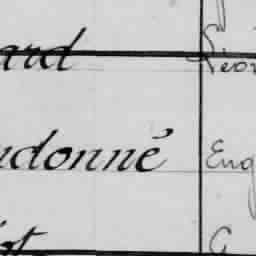 ard Léon
donné Eug
ot G